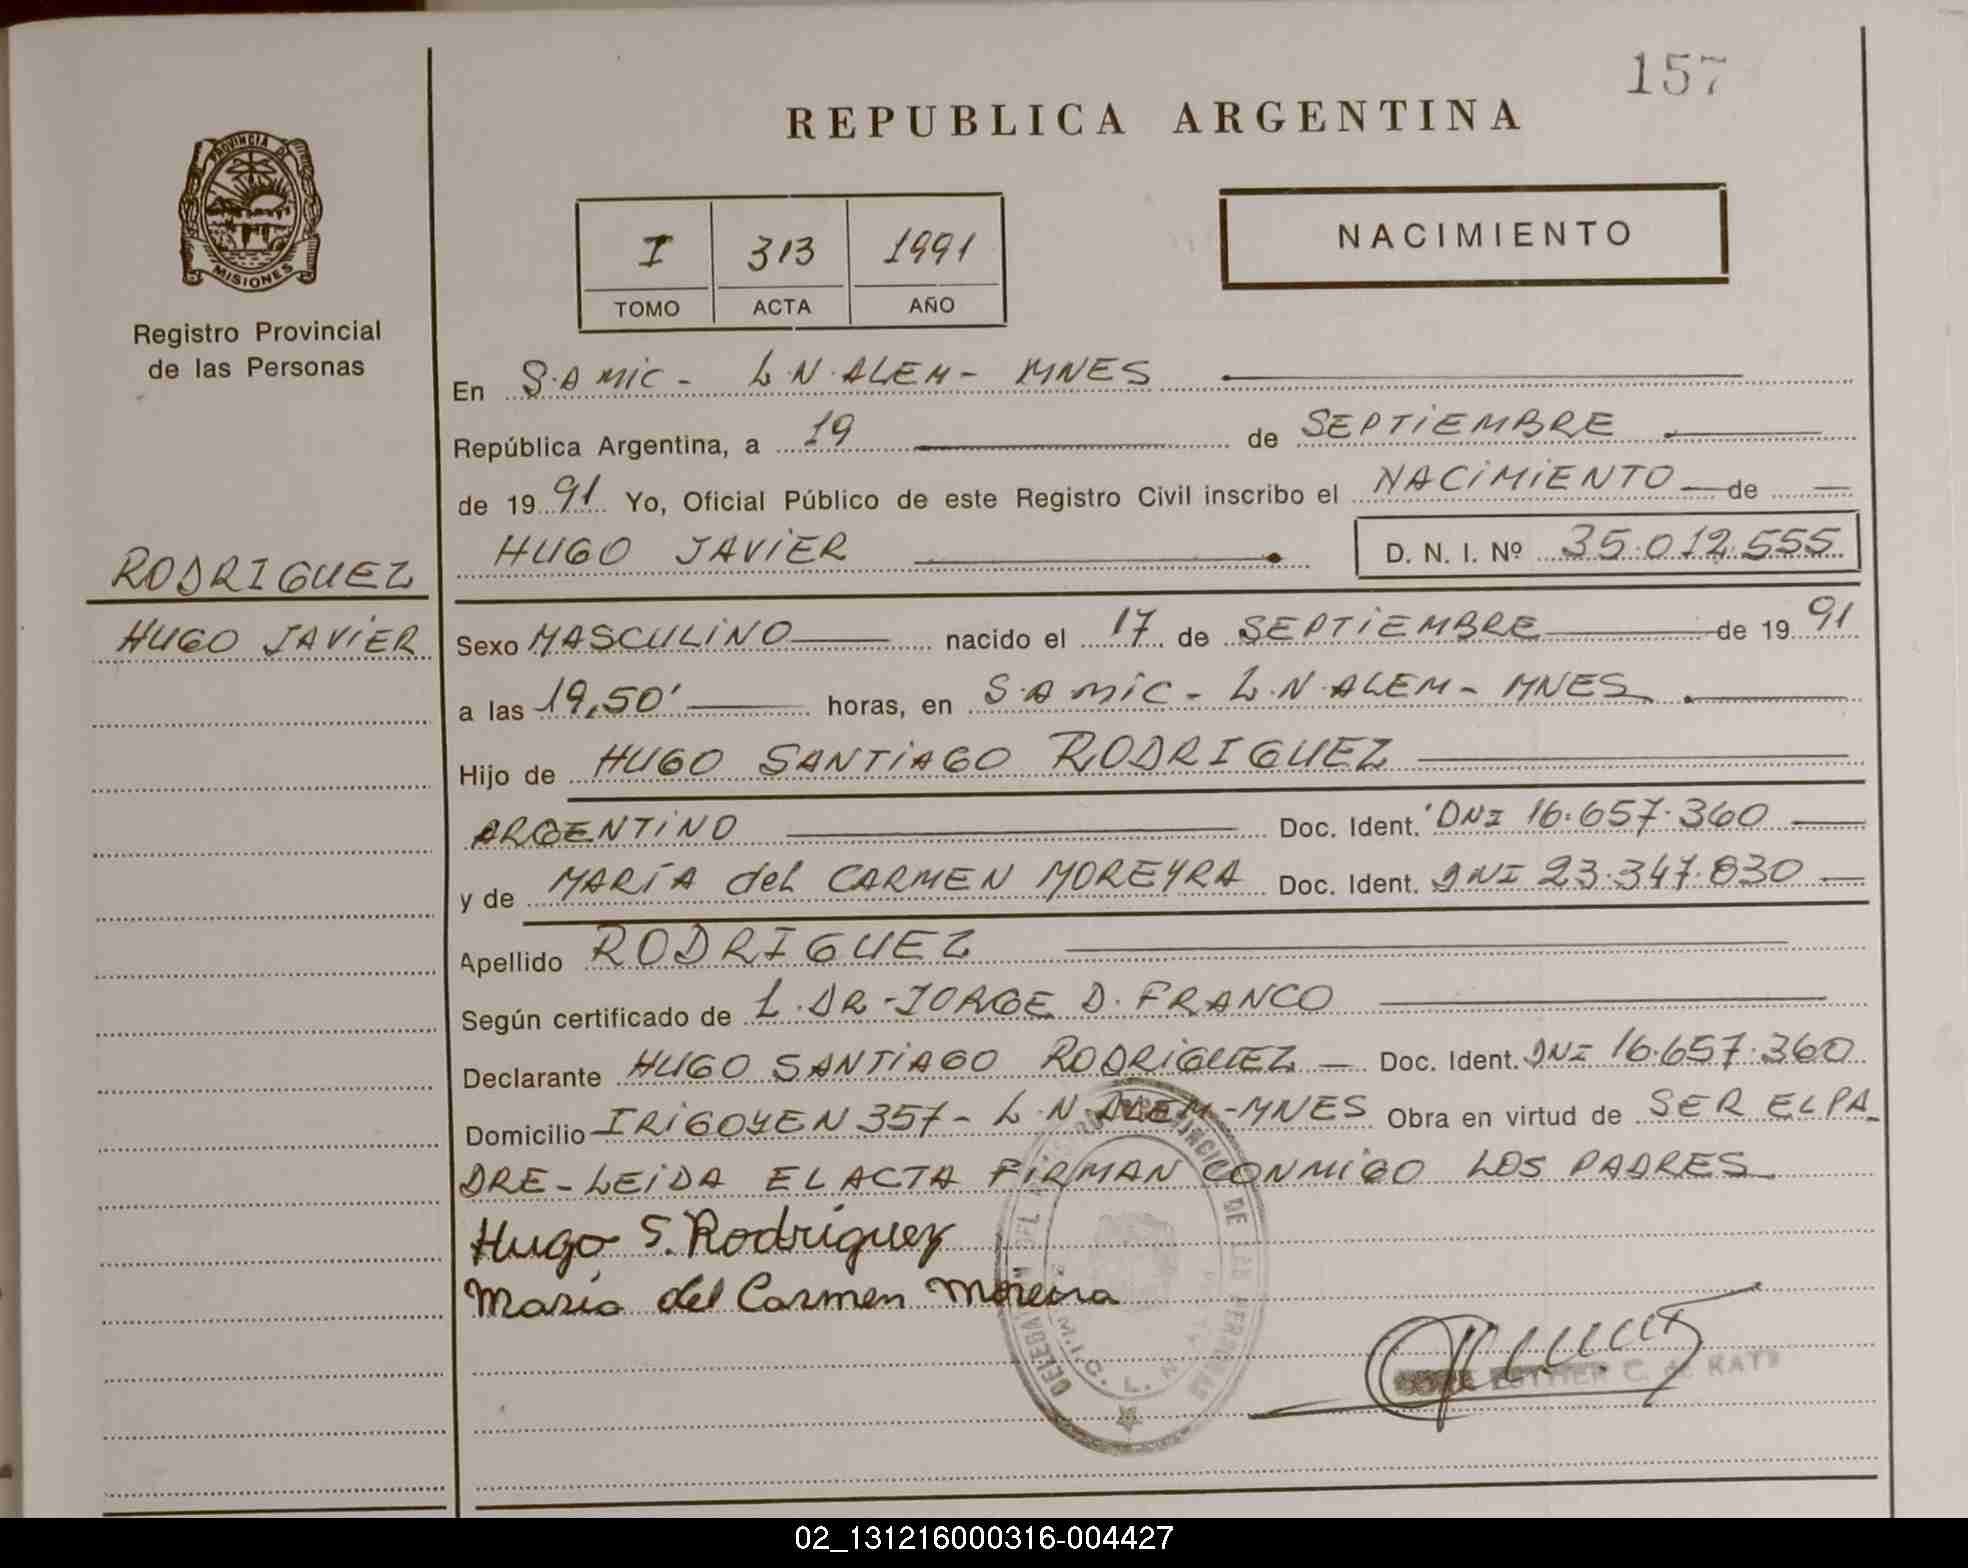 157
REPUBLICA ARGENTINA
PROVINCIA DE
MISIONES
Registro Provincial
de las Personas
I 313 1991
TOMO ACTA AÑO
NACIMIENTO
En S.A MIC - L.N.ALEM - MNES
República Argentina, a 19 de SEPTIEMBRE
de 1991 Yo, Oficial Público de este Registro Civil inscribo el NACIMIENTO de
HUGO JAVIER D. N. I. Nº 35.012.555
RODRIGUEZ
HUGO JAVIER
Sexo MASCULINO nacido el 17 de SEPTIEMBRE de 1991
a las 19,50' horas, en S.A MIC - L.N.ALEM - MNES
Hijo de HUGO SANTIAGO RODRIGUEZ
ARGENTINO Doc. Ident. DNI 16.657.360
y de MARÍA del CARMEN MOREYRA Doc. Ident. DNI 23.347.830
Apellido RODRIGUEZ
Según certificado de L.DR-JORGE D. FRANCO
Declarante HUGO SANTIAGO RODRIGUEZ Doc. Ident. DNI 16.657.360
Domicilio IRIGOYEN 357 - L.N ALEM - MNES Obra en virtud de SER EL PA-
DRE - LEIDA EL ACTA FIRMAN CONMIGO LOS PADRES
Hugo S. Rodriguez
Maria del Carmen Moreira
ESTHER C. de
02_131216000316-004427